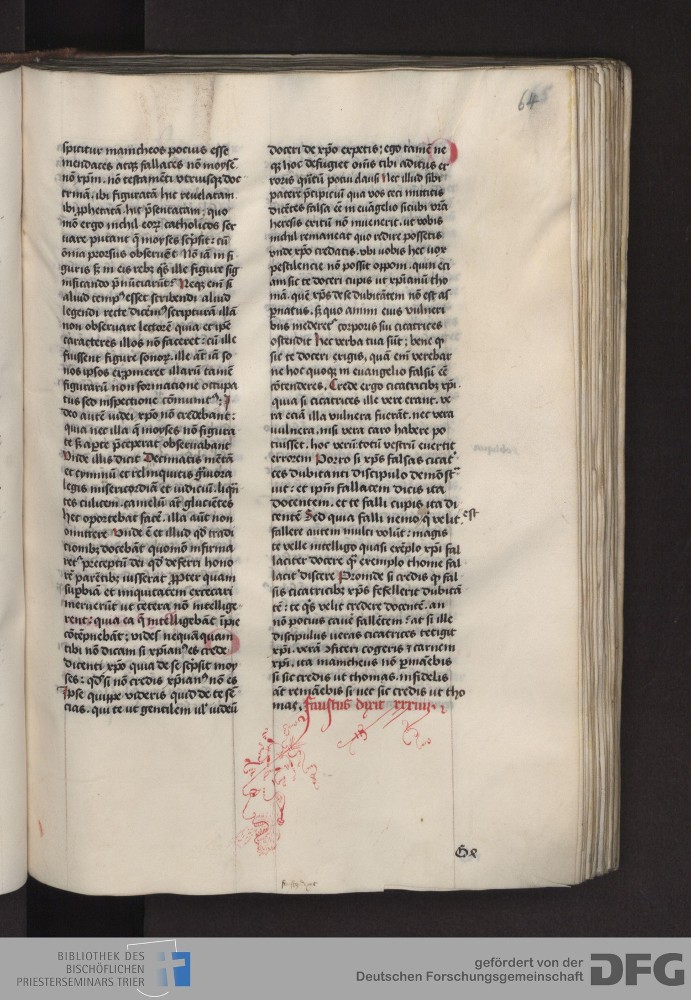 64
spicitur manicheos potius esse
mendaces atqꝫ fallaces nō moyse͂
nō xp̄m. nō testamēti vtriusqꝫ doc
trinā. ibi figuratā hic reuelatam
ibi ꝓphetatā. hic p̄sentatam; quo
mō ergo nichil eoꝝ catholicos ser
uare putant q̄ moyses sc̄psit: cū
om̄ia prorsus obseruēt Nō iā in fi
guris sꝫ in eis rebꝫ q̄s ille figure sig
nificando p̄nūciarūt: Neqꝫ em̄ si
aliud tempꝰ esset scribendi aliud
legendi recte dicemꝰ scripturā illā
non obseruare lectorē quia et ip̄e
caracteres illos nō faceret: cū ille
fuissent figure sonoꝝ. ille aūt iā so
nos ipsos exp̄meret illarū tamē
figurarū non formatione occupa
tus sed inspectione cōmunitꝰ; I
deo autē iudei xp̄o nō credebant:
quia nec illa q̄ moyses nō figura
te sꝫ apte p̄ceperat obseruabant
Vnde illis dicit Decimatis mētā
et cyminū et relinquitis g̈uiora
legis misericordiā et iudiciū. liqn̄
tes culicem. camelū aūt glucie͂tes
hec oportebat facē. illa aūt non
omittere Vnde ē et illud qd̄ tradi
tionibꝫ docebāt quomō infirma
retꝰ preceptū dei qd̄ deferri hono
rē parētibꝫ iusserat ꝓpter quam
suꝑbiā et iniquitatem excecari
meruerūt ut cetera nō intellige
rent: quia ea q̄ intelligebāt īpie
cōtēpnebāt; vides nequāquam
tibi nō dicam si xp̄ianꝰ es crede
dicenti xp̄o quia de se sc̄psit moy
ses: qd̄ si nō credis xp̄ianꝰ nō es
Ipse quippe videris quid de te sē
cias. qui te ut gentilem ul̄ iudeū
doceri de xp̄o expetis; ego tamē ne
qꝫ hoc defugiēt om̄is tibi aditus er
roris qn̄tū potui clausi Nec illud sibi
patere p̄cipiciū qua vos ceci mittitis
dicētes falsa cē in euāgelio sicubi vr̄a
heresis exitū nō inuenerit. ut vobis
nichil remaneat quo redire possetis
vnde xp̄o credatis. ubi uobis hec uox
pestilencie nō possit opponi. quin eti
am sic te doceri cupis ut xp̄ianū tho
mā. quē xp̄s de se dubitātem nō est as
ꝑnatus. sꝫ quo animi eius vulneri
bus mederetꝰ corporis sui cicatrices
ostendit Hec verba tua sūt; bene qꝫ
sic te doceri exigis. quā em̄ verebar
ne hoc quoqꝫ in euangelio falsū ee͂
cōtenderes. Crede ergo cicatricibꝫ xp̄i.
quia si cicatrices ille vere erant. ve
ra etiā illa vulnera fuerāt. nec vera
vulnera. nisi vera caro habere po
tuisset. hoc verū totū vestrū euertit
errorem Porro si xp̄s falsas cicat͛
ces dubitanti discipulo demōst͛
uit: et ip̄m fallacem dicis ita
docentem. et te falli cupis ita di
centē Sed quia falli nemo q̄ velit. est
fallere autem multi volūt: magis
te velle intelligo quasi exēplo xp̄i fal
laciter docere qꝫ exemplo thome fal
lacit͛ discere Proinde si credis qꝫ fal
sis cicatricibꝫ xp̄s fefellerit dubitā
tē: te q̄s velit credere docentē. an
nō potius caue fallētem: at si ille
discipulus ueras cicatrices tetigit
xp̄i. verā ꝯfiteri cogeris ⁊ carnem
xp̄i. ita manicheus nō ꝑmaēbis
si sic credis ut thomas. infidelis
at̄ remāebis si nec sic credis ut tho
mas. Faustus dixit xxxiiij.